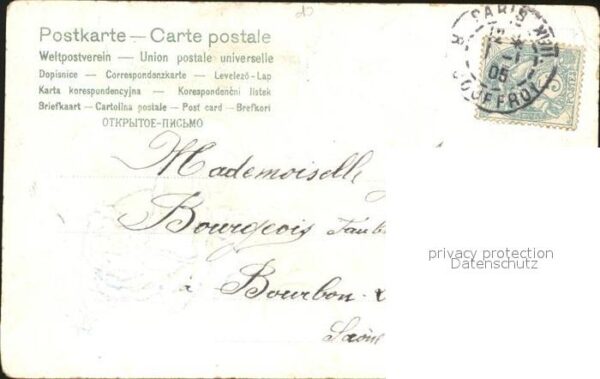 Postkarte — Carte postale
Weltpostverein — Union postale universelle
Dopisnice — Correspondenzkarte — Levelező-Lap
Karta korespondencyjna — Korespondenční listek
Briefkaart — Cartolina postale — Post card — Brefkort
ОТКРЫТОЕ-ПИСЬМО
PARIS
12
05
Mademoiselle
Bourgeois
à Bourbon-
Saône
privacy protection
Datenschutz